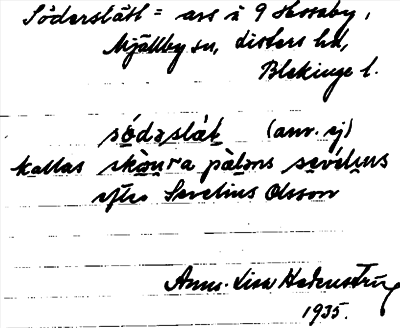 Söderslätt = ars å 9 Hosaby,
Mjällby sn, Listers hd,
Blekinge l.
södəslät (anv. ej)
kallas skònra pàləns səvélius
efter Sevelius Olsson
Anna-Lisa Hedenström
1935.